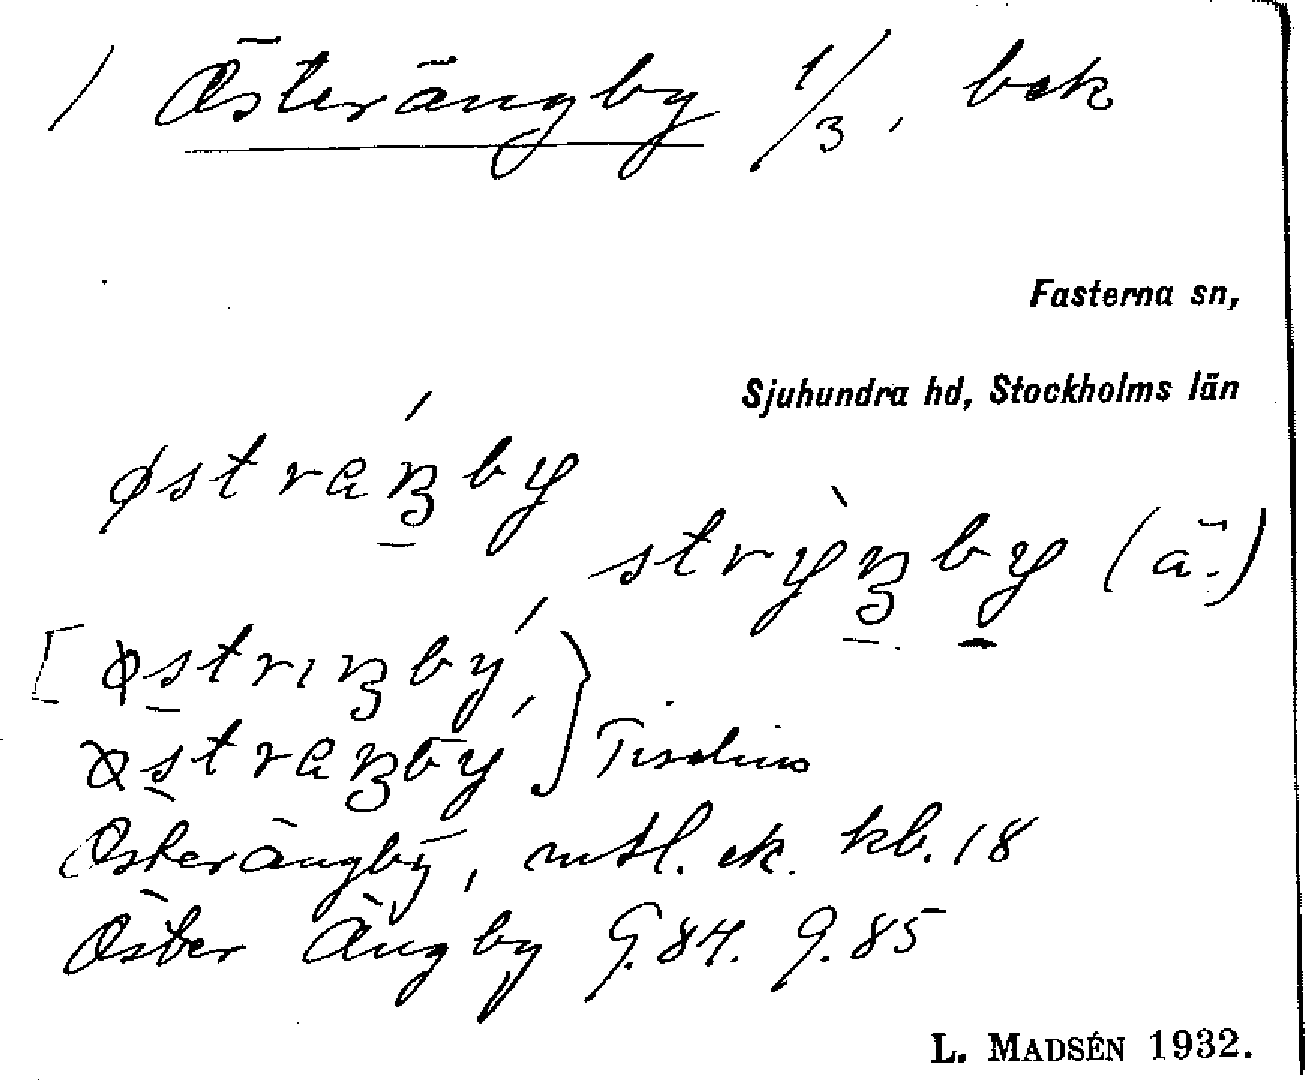 1 Österängby 1/3, bek
Fasterna sn,
Sjuhundra hd, Stockholms län
østraŋby
stryŋby (ä.)
[østrıŋbý,
østraŋbý } Tiselius
Österängby, mtl. ek. kb. 18
Öster Ängby G. 84. G. 85
L. MADSÉN 1932.